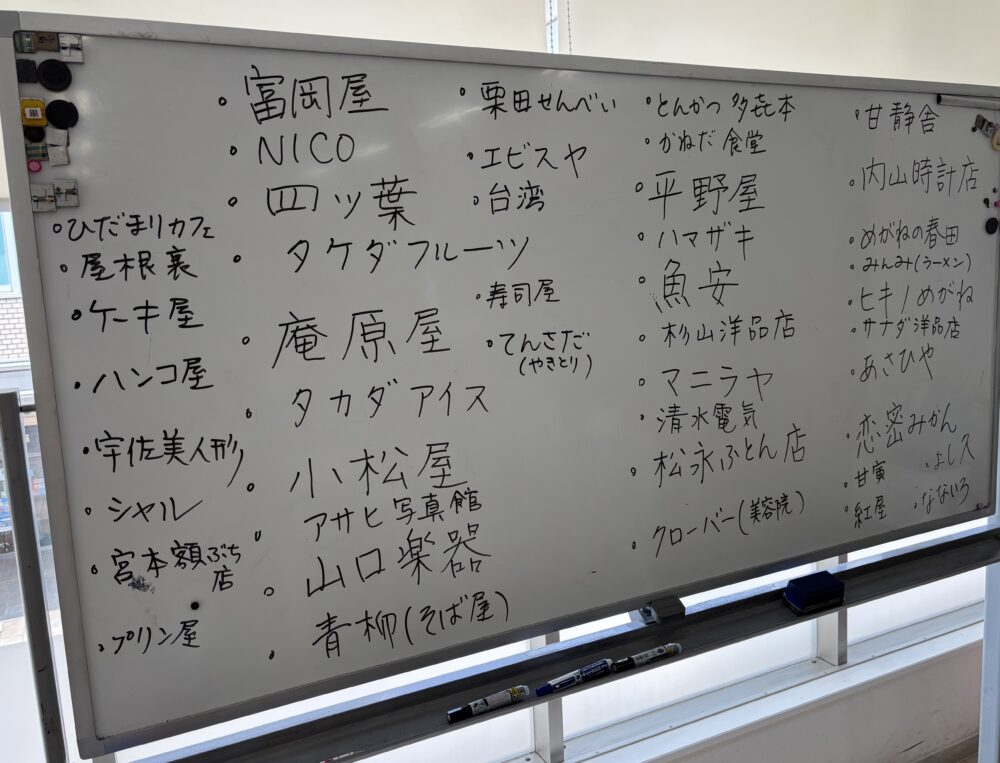 ・ひだまりカフェ
・屋根裏
・ケーキ屋
・ハンコ屋
・宇佐美人形
・シャル
・宮本額ぶち
店
・プリン屋
・富岡屋
・NICO
・四ッ葉
・タケダフルーツ
・庵原屋
・タカダアイス
・小松屋
・アサヒ写真館
・山口楽器
・青柳(そば屋)
・栗田せんべい
・エビスヤ
・台湾
・寿司屋
・てんさだ
(やきとり)
・とんかつ 多㐂本
・かねだ食堂
・平野屋
・ハマザキ
・魚安
・杉山洋品店
・マニラヤ
・清水電気
・松永ふとん店
・クローバー(美容院)
・甘静舎
・内山時計店
・めがねの春田
・みんみ(ラーメン)
・ヒキノめがね
・サナダ洋品店
・あさひや
・恋密みかん
・甘寅 ・よし久
・紅屋 ・なないろ